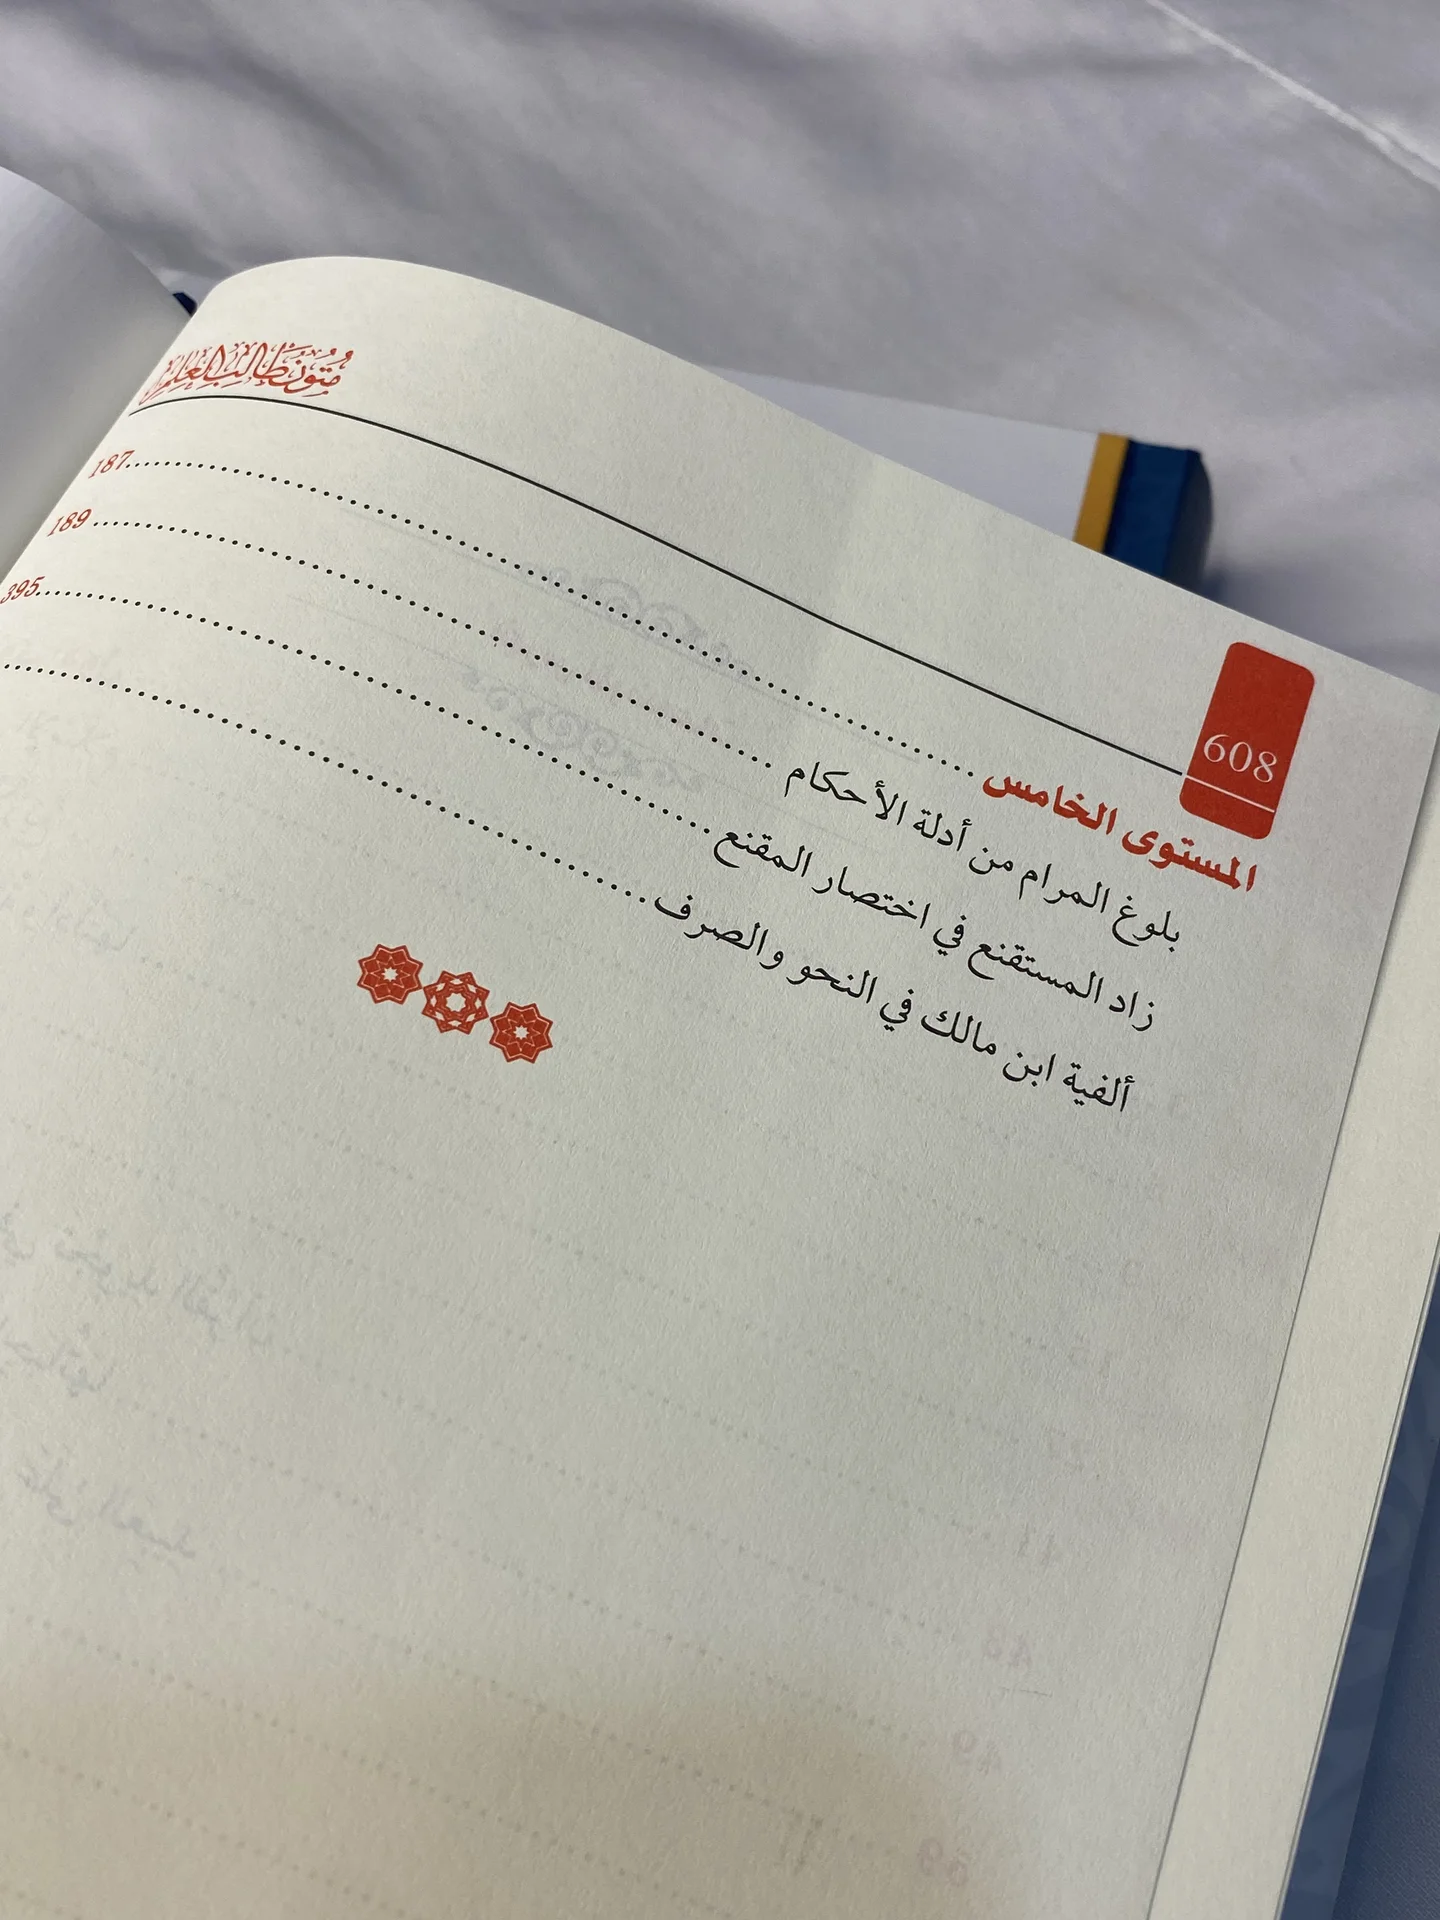 متون طالب العلم
608
المستوى الخامس 187
بلوغ المرام من أدلة الأحكام 189
زاد المستقنع في اختصار المقنع 395
ألفية ابن مالك في النحو والصرف